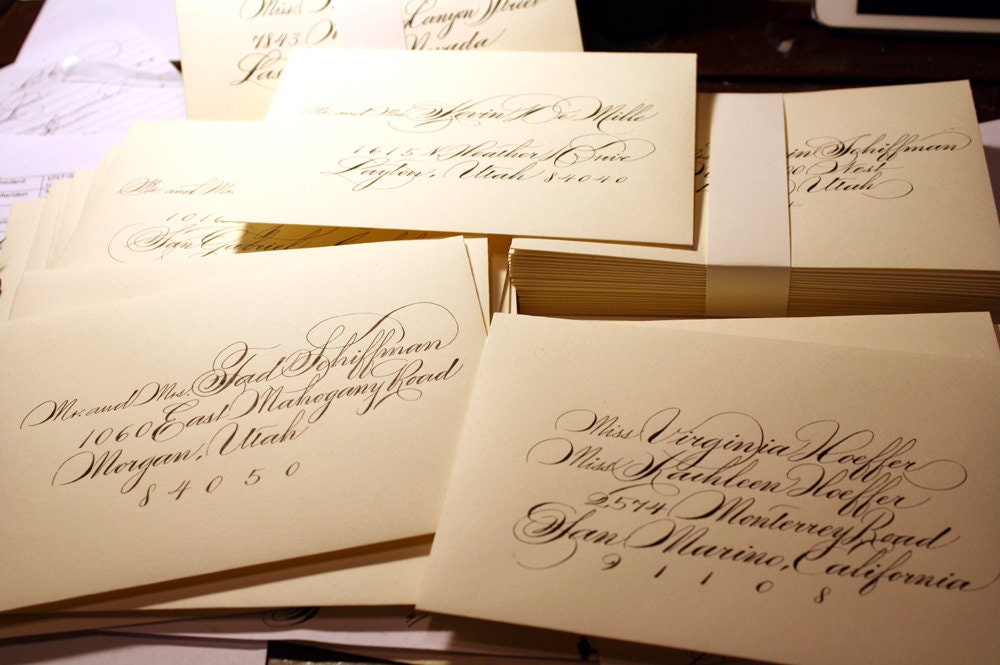 Miss
7843
Las
Canyon Street
Nevada
Mr. and Mrs. Kevin H De Mille
1615 N. Heather Drive
Layton, Utah 84040
Schiffman
West
Utah
Mr. and
1016
San Gabriel
Mr. and Mrs. Tad Schiffman
1060 East Mahogany Road
Morgan, Utah
84050
Miss Virginia Hoeffer
Miss Kathleen Hoeffer
2574 Monterrey Road
San Marino, California
91108